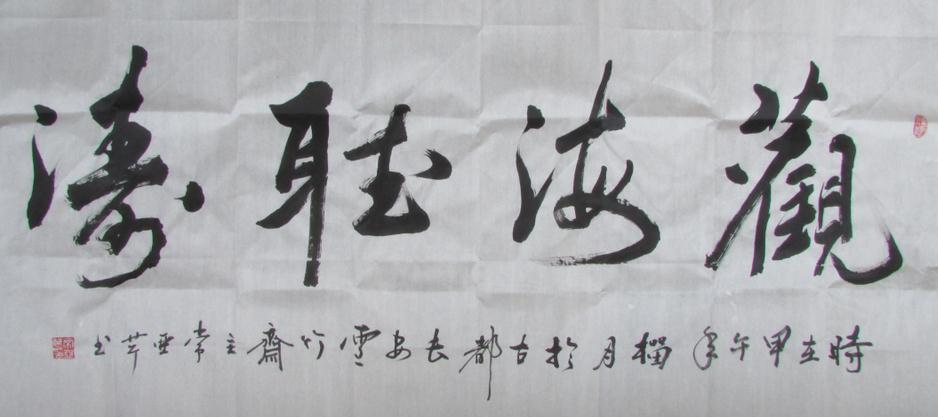 觀海聽濤
時在甲午年榴月於古都長安雪竹齋主常亜芹书